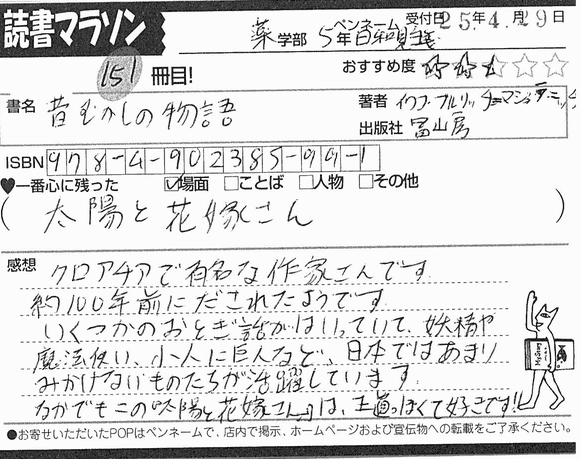 読書マラソン
薬学部 5年 ペンネーム 受付日25年4月29日
151冊目!
おすすめ度
書名 昔むかしの物語
著者 イワナ・ブルリッチ=マジュラニッチ
出版社 冨山房
ISBN 978-4-902385-94-1
♥一番心に残った ☑場面 □ことば □人物 □その他
(太陽と花嫁さん)
感想 クロアチアで有名な作家さんです
約100年前にだされたようです
いくつかのおとぎ話がはいっていて、妖精や
魔法使い、小人に巨人など、日本ではあまり
みかけないものたちが活躍しています
なかでもこの『太陽と花嫁さん』は、王道っぽくて好きです!!
●お寄せいただいたPOPはペンネームで、店内で掲示、ホームページおよび宣伝物への転載をご了承ください。